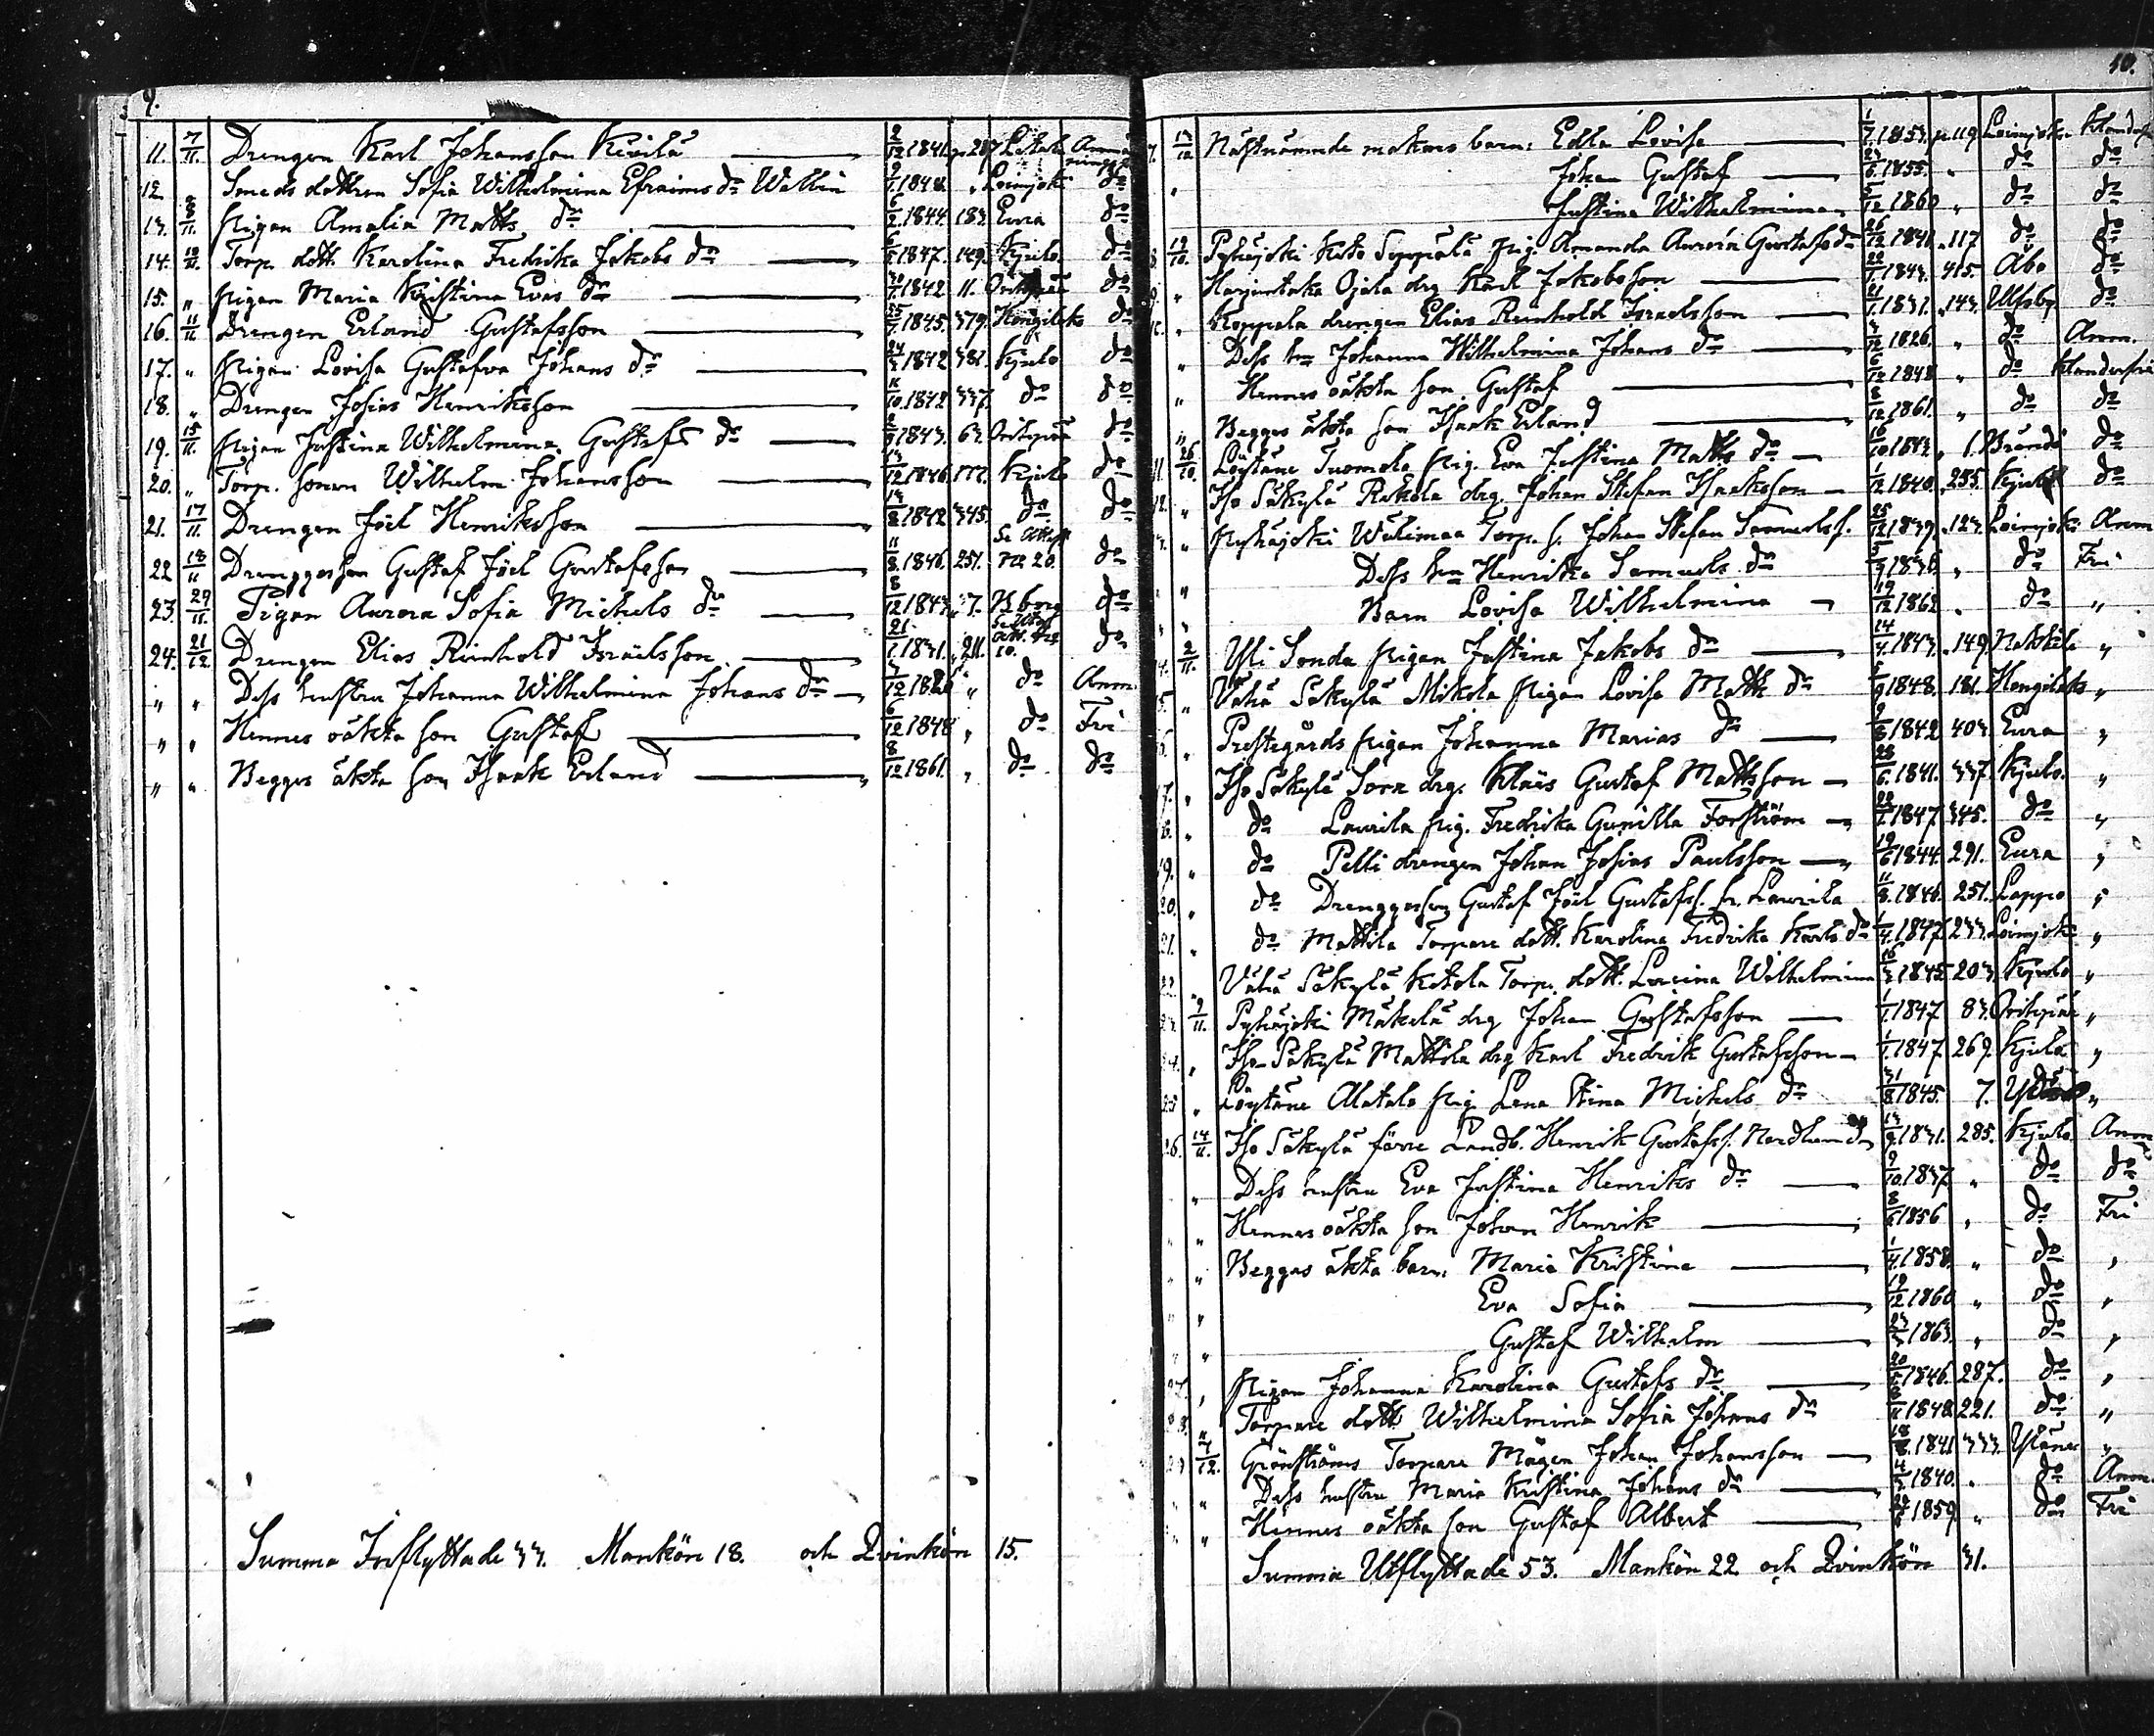 9.
11. 7/11. Drengen Karl Johansson Kivilä 2/12 1841. p. 287 Letala Anmärkningsfri
12. Smeds dottren Sofia Wilhelmina Efraims dr Wallin 1848. " Loimjoki do
13. 8/11. Pigan Amalia Matts dr 6/2. 1844. 183. Eura do
14. 10/11. Torp. dott. Karolina Fredrika Jakobs dr 1847. 149. Kjulo do
15. " Pigan Maria Kristina Evas dr 1842 11. Oripää do
16. 11/11 Drengen Erland Gustafsson 25/7. 1845. 379. Hongiloks do
17. " Pigan Lovisa Gustafva Johans dr 24/2 1842 381. Kjulo do
18. " Drengen Josias Henriksson 11/10. 1842 337. do do
19. 15/11. Pigan Justina Wilhelmina Gustafs dr 1843. 63. Oripää do
20. " Torp. sonen Wilhelm Johansson 13/12 1846 Kjulo do
21. 17/11. Drengen Joel Henriksson 14/8 1842 345. do do
22 18/11 Drenggosson Gustaf Joel Gustafsson 11/8. 1846. 251. Se Attest No 20. do
23. 29/11. Pigan Aurora Sofia Michels dr 8/12 1843. 7. Wborg do
24. 21/12. Drengen Elias Reinhold Israelsson 21/1. 1831. 211. Se Utfl. Att. No 10. do
" " Dess hustru Johanna Wilhelmina Johans dr 7/12 1826 " do Anm.
" " Hennes oäkta son Gustaf 6/12 1848 " do Fri
" " Begges äkta son Isaak Erland 8/12 1861. " do do
Summa Inflyttade 33. Mankön 18. och Qvinkön 15.
10.
7. 12/10 Nästnämnde makars barn: Edla Lovisa 1/7. 1853. p. 119 Loimjoki Klanderfri
" Johan Gustaf 27/6. 1855. " do do
Justina Wilhelmina 5/12 1860 " do do
8. 19/10. Pyhäjoki Keto Seppälä pig. Amanda Aurora Gustafs dr 26/12 1841. 117 do do
9. " Harjuntaka Ojala drg Karl Jakobsson 22/1. 1843. 415. Åbo do
10. " Koppala drengen Elias Reinhold Israelsson 21/1. 1831. 143. Ulfsby do
" Dess hu Johanna Wilhelmina Johans dr 7/12 1826. " do Anm.
" Hennes oäkta son Gustaf 6/12 1848 " do Klanderfri
" Begges äkta son Isaak Erland 8/12 1861. " do do
11. 26/10. Löytäne Tuomola pig. Eva Justina Matts dr 16/10 1843. 1. Brändö do
12. " Iso Säkylä Rekola drg. Johan Stefan Isaksson 1/12. 1840. 255. Kjulo do
13. " Pyhäjoki Wälimaa Torp. s. Johan Stefan Samuelss. 25/12 1839. 123. Loimjoki Anm
" Dess hu Henrika Samuels dr 5/9 1836. " do Fri
" Barn Lovisa Wilhelmina 19/12 1862 " do "
14. 2/11. Yli Sonda pigan Justina Jakobs dr 14/4. 1843. 149. Nakkila "
15. " Vähä Säkylä Mikola pigan Lovisa Matts dr 5/9 1848. 181. Hongiloks "
16. " Prestegårds pigan Johanna Marias dr 9/8 1842 403. Eura "
17. " Iso Säkylä Sora drg. Klaës Gustaf Mattsson 28/6. 1841. 337. Kjulo. "
18. " do Laurila pig. Fredrika Gunilla Forström 22/7. 1847 345. do "
19. " do Pelli drengen Johan Josias Paulsson 19/6 1844. 291. Eura "
20. " do Drenggosson Gustaf Joel Gustafss. fr. Laurila 11/8. 1846. 251. Lappo "
21. " do Mattila Torpare dott. Karolina Fredrika Karls dr 1/4. 1847 233. Loimjoki "
22. " Vähä Säkylä Ketola Torp. dott. Loviina Wilhelmina 16/3 1845 203. Kjulo "
23. 9/11. Pyhäjoki Mäkilä drg Johan Gustafsson 1/1. 1847 83. Oripää "
24. " Iso Säkylä Mattila drg Karl Fredrik Gustafsson 1/1. 1847 269. Kjulo "
25 " Löytäne Alatalo pig. Lena Stina Michels dr 31/8. 1845. 7. "
26. 14/11. Iso Säkylä förre Landb. Henrik Gustafss. Nordlund 13/9. 1831. 285. Kjulo. Anm
" Dess hustru Eva Justina Henriks dr 9/10. 1837 " do do
" " Hennes oäkta son Johan Henrik 8/6 1856 " do Fri
" " Begges äkta barn: Maria Kristina 1/4. 1858. " do "
" Eva Sofia 19/12 1860 " do "
" " Gustaf Wilhelm 1863. " do "
27. " Pigan Johanna Karolina Gustafs dr 20/5. 1846. 287. do "
28. " Torpare dott Wilhelmina Sofia Johans dr 8/11 1848 221. do "
29 7/12. Grönströms Torpare Mågen Johan Johansson 18/8. 1841 333. Yläne "
" " Dess hustru Maria Kristina Johans dr 1840. " do Anm.
" Hennes oäkta son Gustaf Albert 1859 " do Fri
Summa Utflyttade 53. Mankön 22 och Qvinkön 31.